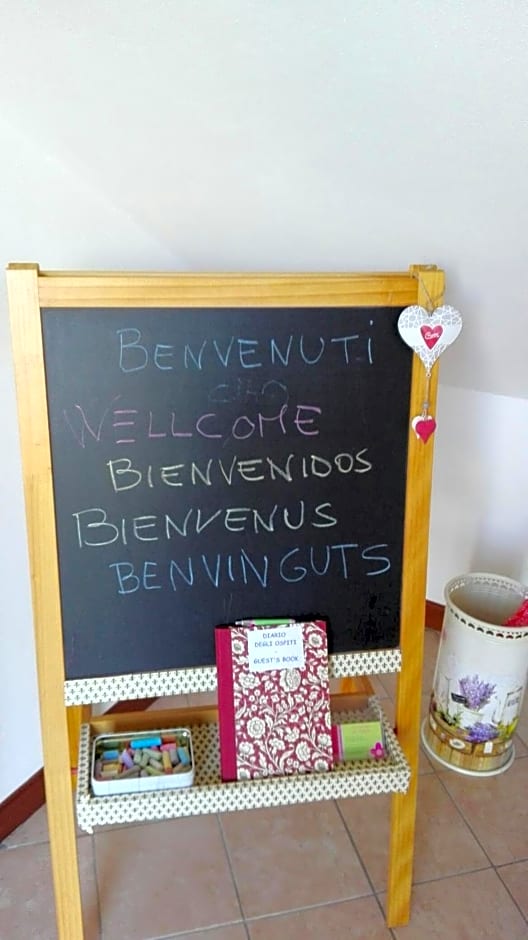 BENVENUTi
CIAO
WELLCOME
BIENVENIDOS
BIENVENUS
BENVINGUTS
DIARIO
DEGLI OSPITI
-
GUEST'S BOOK